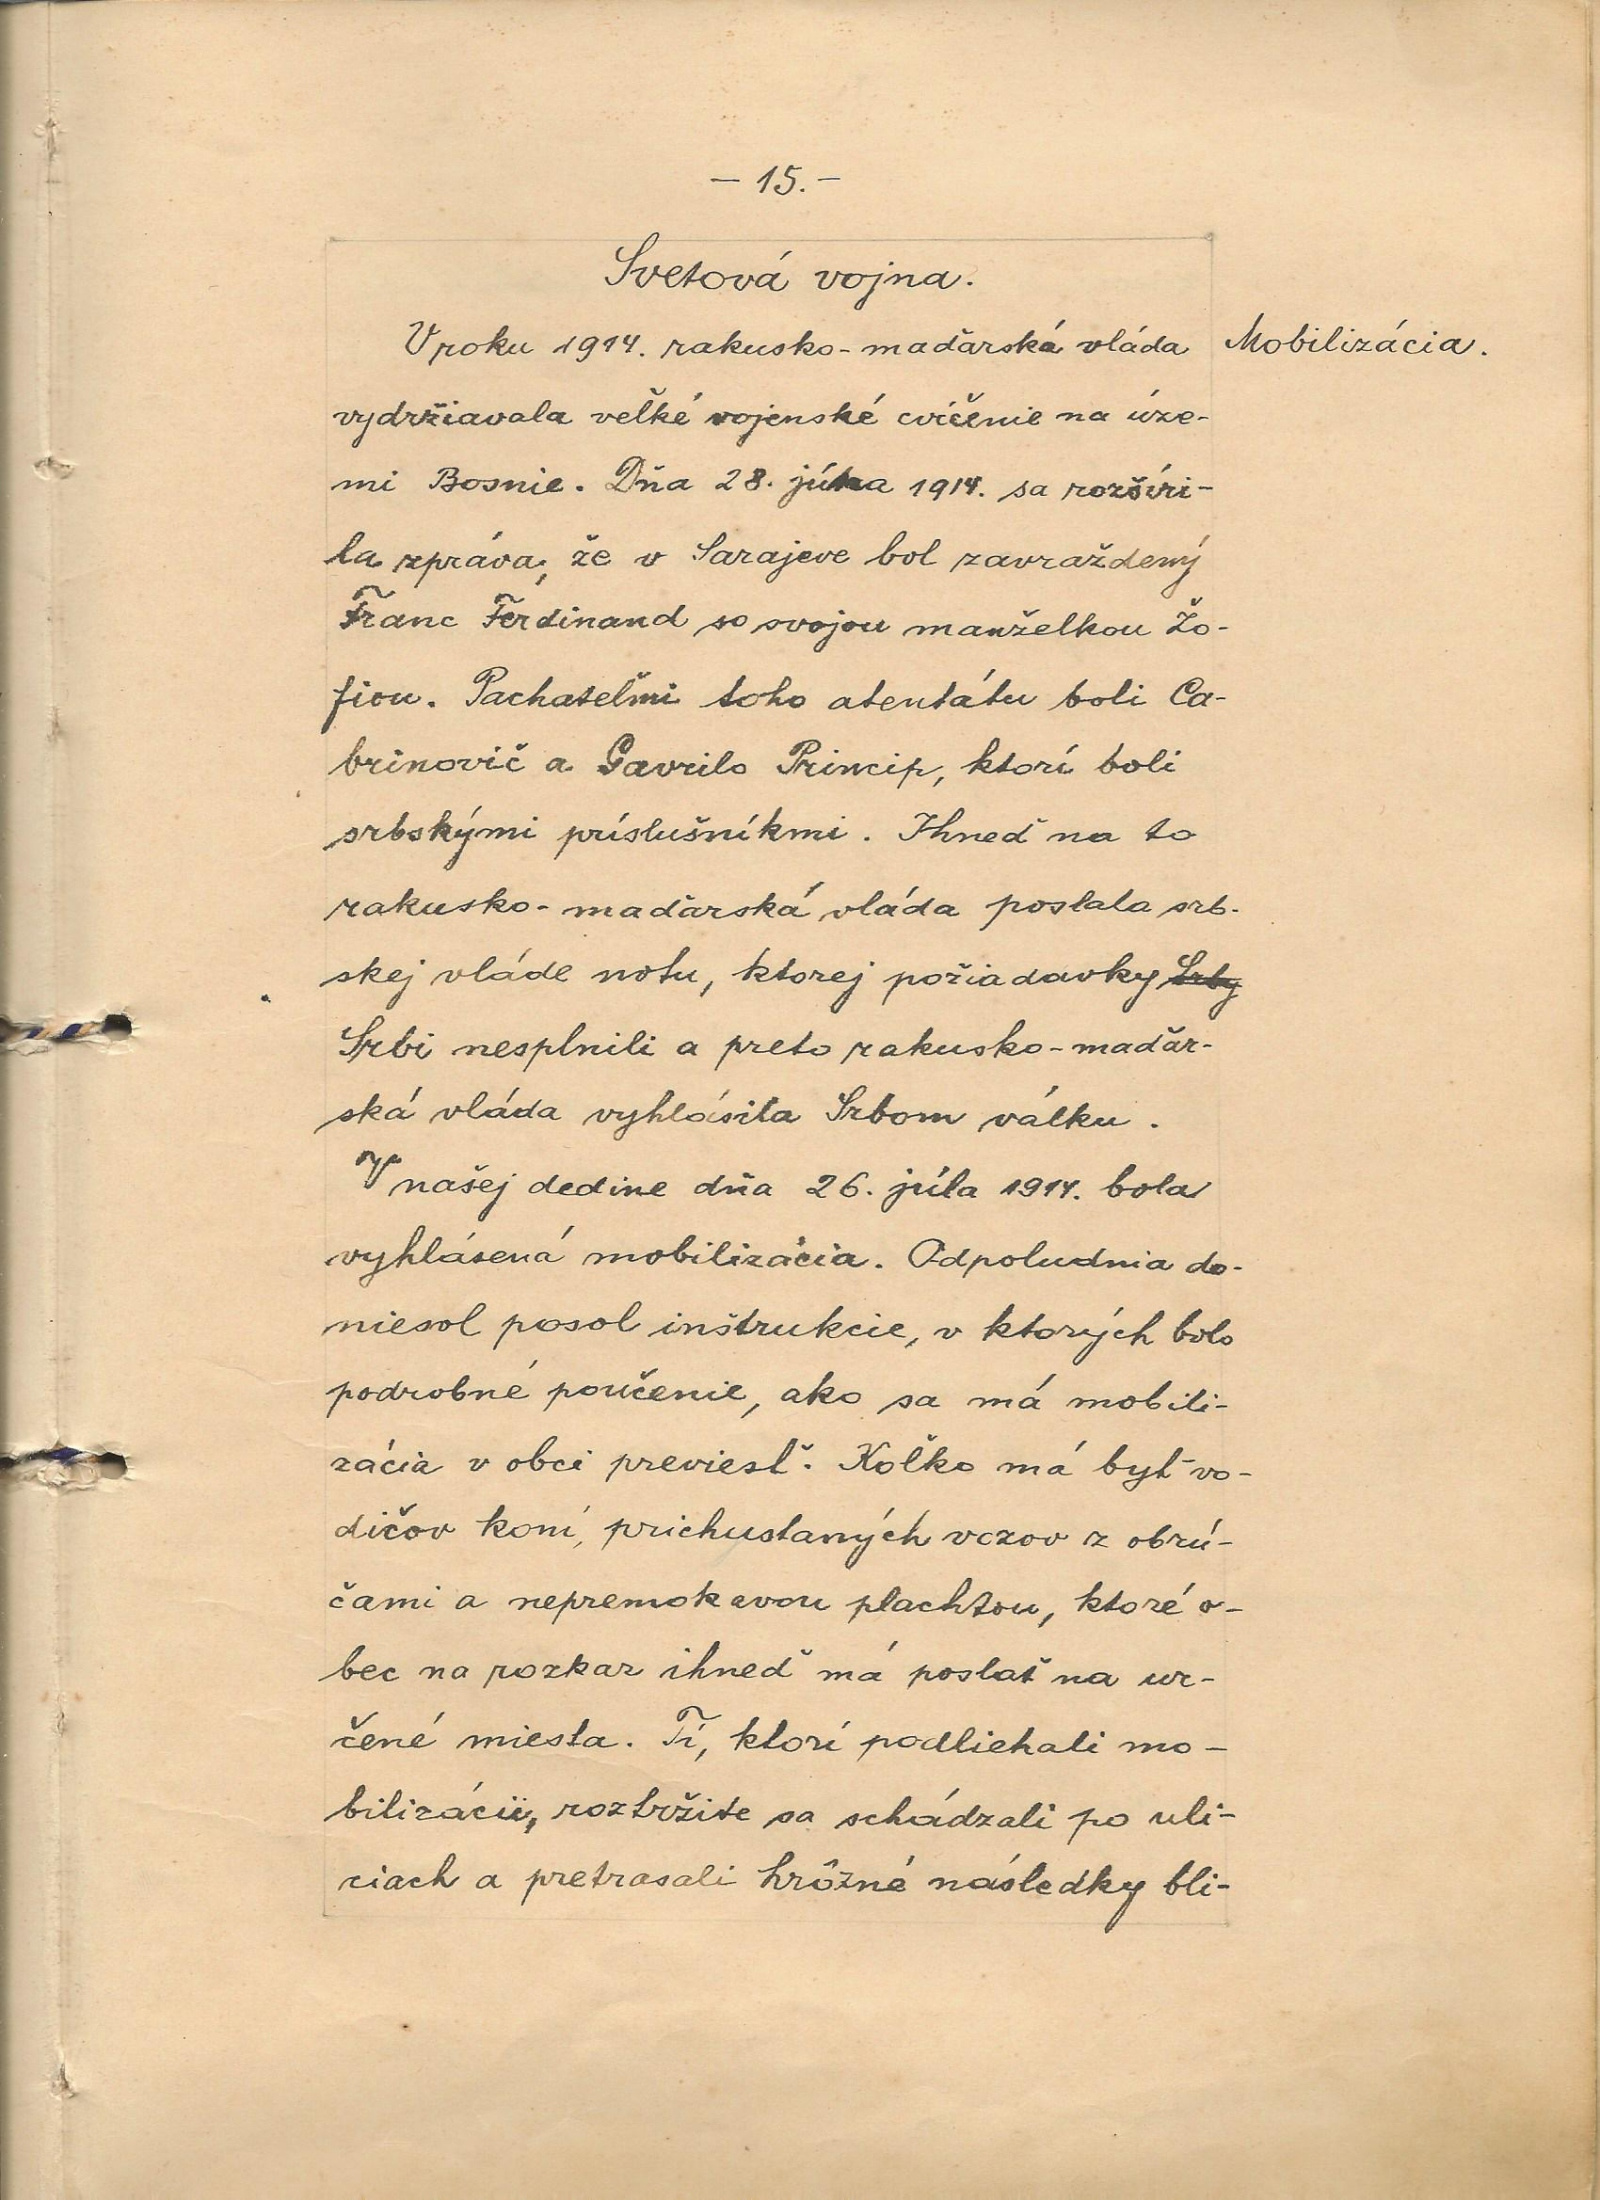 – 15. –
Svetová vojna.
V roku 1914. rakusko-maďarská vláda
Mobilizácia.
vydržiavala veľké vojenské cvičenie na úze-
mi Bosnie. Dňa 28. júna 1914. sa rozšíri-
la zpráva, že v Sarajeve bol zavraždený
Franc Ferdinand so svojou manželkou Žo-
fiou. Pachateľmi toho atentátu boli Ca-
brinovič a Gavrilo Princip, ktorí boli
srbskými príslušníkmi. Ihneď na to
rakusko-maďarská vláda poslala srb-
skej vláde notu, ktorej požiadavky Srby
Srbi nesplnili a preto rakusko-maďar-
ská vláda vyhlásila Srbom válku.
V našej dedine dňa 26. júla 1914. bola
vyhlásená mobilizácia. Odpoludnia do-
niesol posol inštrukcie, v ktorých bolo
podrobné poučenie, ako sa má mobili-
zácia v obci previesť. Koľko má byť vo-
dičov koní, prichustaných vozov z obrú-
čami a nepremokavou plachtou, ktoré o-
bec na rozkaz ihneď má poslať na ur-
čené miesta. Tí, ktorí podliehali mo-
bilizácii, roztržite sa schádzali po uli-
ciach a pretrasali hrôzné následky bli-